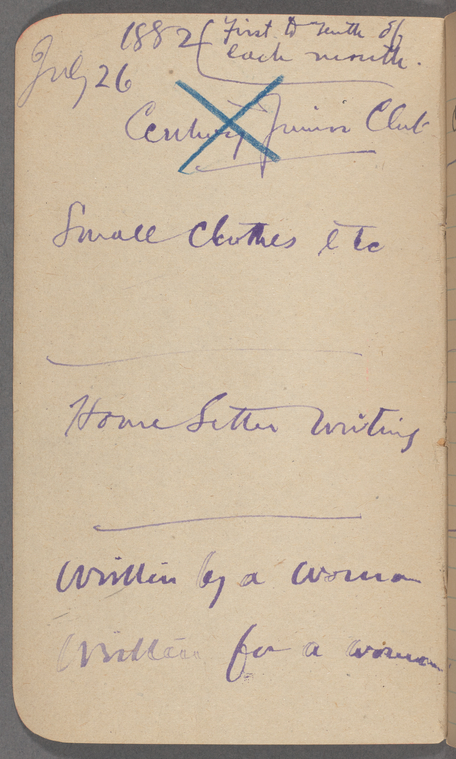 1882 { First to tenth of
each month.
July 26
Century Junior Club
Small Clothes etc
Home Letter Writing
Written by a woman
Written for a woman